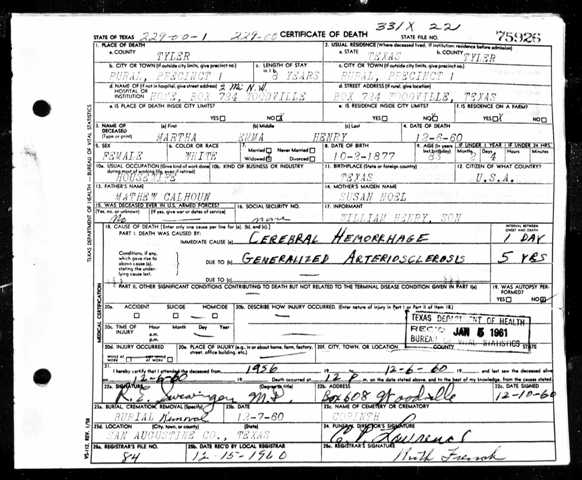 331X 22
STATE OF TEXAS 229-00-1 229-00 CERTIFICATE OF DEATH STATE FILE NO. 75926
1. PLACE OF DEATH
a. COUNTY TYLER
2. USUAL RESIDENCE (Where deceased lived. If institution: residence before admission)
a. STATE TEXAS b. COUNTY TYLER
b. CITY OR TOWN (If outside city limits, give precinct no.) RURAL, PRECINCT 1
c. LENGTH OF STAY 8 YEARS
c. CITY OR TOWN (If outside city limits, give precinct no.) RURAL, PRECINCT 1
d. NAME OF (If not in hospital, give street address) HOSPITAL OR INSTITUTION 2 mi N.W.
BOX 724 WOODVILLE
d. STREET ADDRESS (If rural, give location)
BOX 724 WOODVILLE, TEXAS
e. IS PLACE OF DEATH INSIDE CITY LIMITS? YES NO
e. IS RESIDENCE INSIDE CITY LIMITS? YES NO
f. IS RESIDENCE ON A FARM? YES NO
3. NAME OF DECEASED (Type or print) (a) First MARTHA (b) Middle EMMA (c) Last HENRY
4. DATE OF DEATH 12-6-60
5. SEX FEMALE
6. COLOR OR RACE WHITE
7. Married Never Married Widowed Divorced
8. DATE OF BIRTH 10-2-1877
9. AGE IF UNDER 1 YEAR IF UNDER 24 HRS. 2 4
10a. USUAL OCCUPATION HOUSEWIFE
10b. KIND OF BUSINESS OR INDUSTRY
11. BIRTHPLACE (State or foreign country) TEXAS
12. CITIZEN OF WHAT COUNTRY? U.S.A.
13. FATHER'S NAME MATHEW CALHOUN
14. MOTHER'S MAIDEN NAME SUSAN NOEL
15. WAS DECEASED EVER IN U.S. ARMED FORCES? (Yes, no, or unknown) (If yes, give war or dates of service) No
16. SOCIAL SECURITY NO. none
17. INFORMANT WILLIAM HENRY, SON
18. CAUSE OF DEATH (Enter only one cause per line for (a), (b), and (c).)
INTERVAL BETWEEN ONSET AND DEATH
PART I. DEATH WAS CAUSED BY:
IMMEDIATE CAUSE (a) CEREBRAL HEMORRHAGE 1 DAY
Conditions, if any, which gave rise to above cause (a), stating the underlying cause last.
DUE TO (b) GENERALIZED ARTERIOSCLEROSIS 5 YRS
DUE TO (c)
PART II. OTHER SIGNIFICANT CONDITIONS CONTRIBUTING TO DEATH BUT NOT RELATED TO THE TERMINAL DISEASE CONDITION GIVEN IN PART I (a)
19. WAS AUTOPSY PERFORMED? YES NO
20a. ACCIDENT SUICIDE HOMICIDE
20b. DESCRIBE HOW INJURY OCCURRED. (Enter nature of injury in Part I or Part II of item 18.)
20c. TIME OF INJURY Hour Month Day Year
TEXAS DEPARTMENT OF HEALTH
REC'D JAN 5 1961
BUREAU OF VITAL STATISTICS
20d. INJURY OCCURRED
20e. PLACE OF INJURY (e.g., in or about home, farm, factory, street, office building, etc.)
20f. CITY, TOWN, OR LOCATION COUNTY STATE
21. I hereby certify that I attended the deceased from 1956 to 12-6-60 and last saw the deceased alive
12-6-60 Death occurred at 12 P. m. on the date stated above, and to the best of my knowledge, from the causes stated.
22a. SIGNATURE (Degree or title) M.D.
22b. ADDRESS Box 608 Woodville
22c. DATE SIGNED 12-10-60
23a. BURIAL, CREMATION, REMOVAL (Specify) BURIAL Removal
23b. DATE 12-7-60
23c. NAME OF CEMETERY OR CREMATORY
23d. LOCATION (City, town, or county) (State) SAN AUGUSTINE CO., TEXAS
24. FUNERAL DIRECTOR'S SIGNATURE
25a. REGISTRAR'S FILE NO. 84
25b. DATE REC'D BY LOCAL REGISTRAR 12-15-1960
25c. REGISTRAR'S SIGNATURE Ruth French
TEXAS DEPARTMENT OF HEALTH - BUREAU OF VITAL STATISTICS
MEDICAL CERTIFICATION